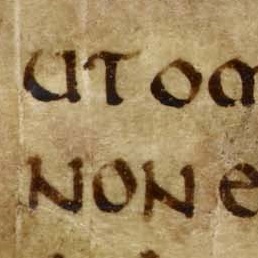 UT OM
NON E